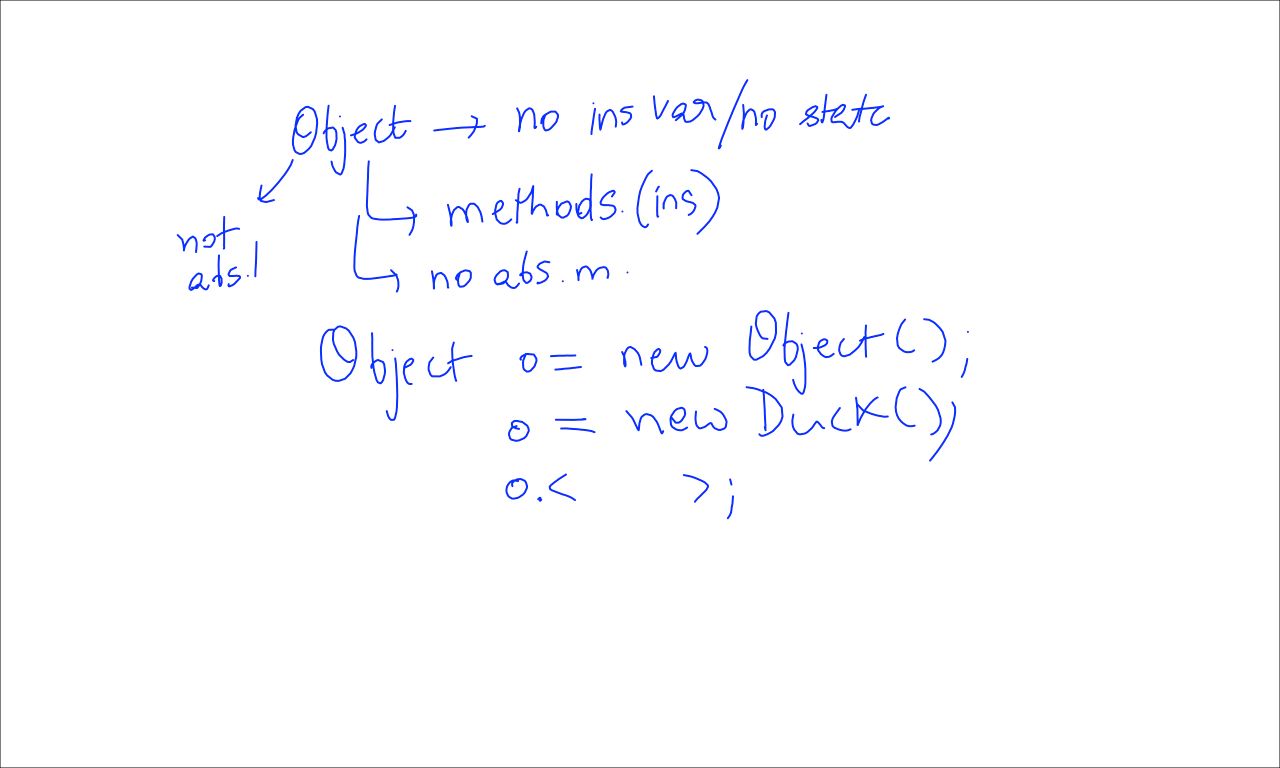 Object → no ins var/no state
→ methods.(ins)
not
abs.
→ no abs.m.
Object o = new Object();
o = new Duck();
o.< >;